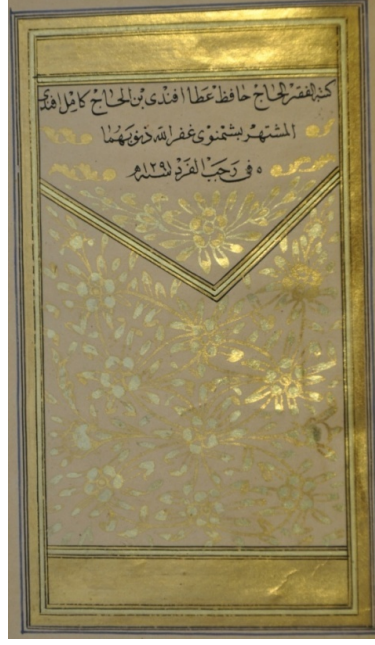 كتبه الفقير الحاج حافظ عطا افندى بن الحاج كامل افندى
المشتهر بشمنوى غفر الله ذنوبهما
فى رجب الفرد سنه ١٢٩١